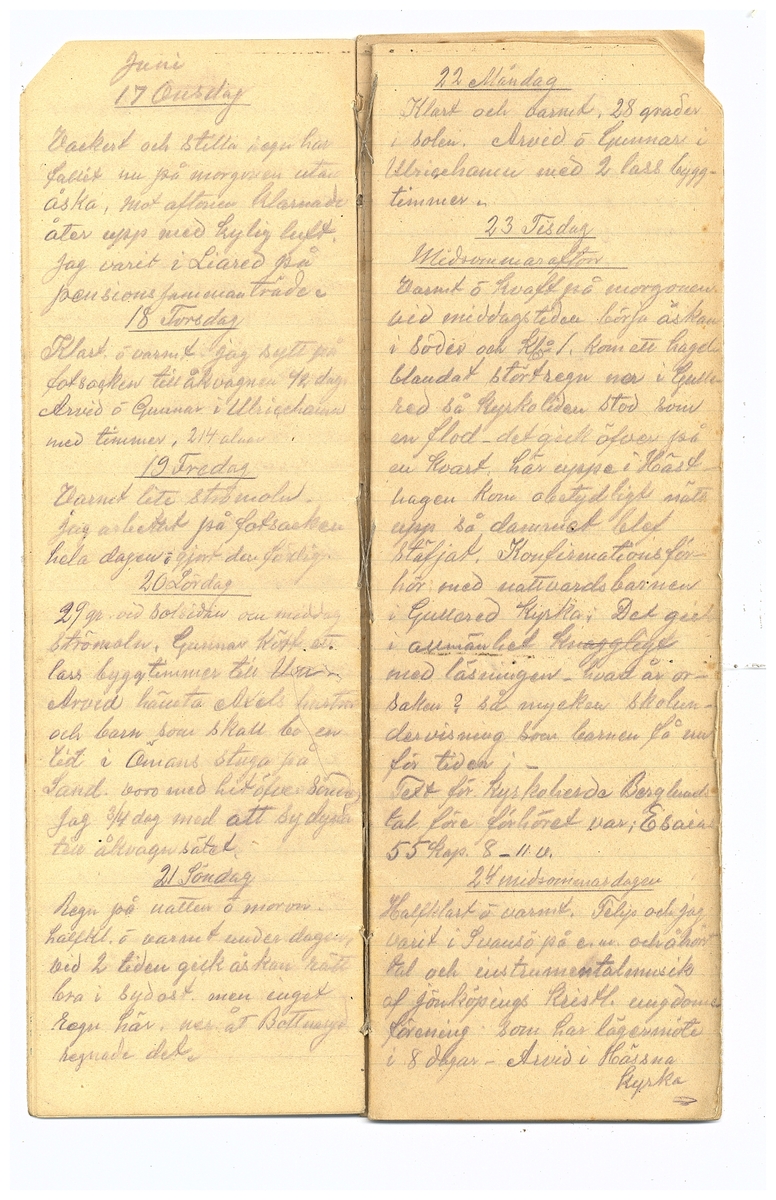 Juni
17 Onsdag
Vackert och stilla regn har
fallet nu på morgonen utan
åska, mot aftonen klarnade
åter upp med kylig luft.
Jag varit i Liared på
pensionssammanträde.
18 Torsdag
Klart ö varmt. jag sytt på
fotsacken till åkvagnen 1/2 dag.
Arvid ö Gunnar i Ulricehamn
med timmer, 214 alnar.
19 Fredag
Varmt lite strömoln.
Jag arbettet på fotsacken
hela dagen ö gjort den färdig.
20 Lördag
29 gr. vid solsidan om middag
strömoln. Gunnar kört ett
lass byggtimmer till
Arvid hämta Axels hustru
och barn som skall bo en
tid i Ömans stuga på
Sand. voro med hit öfver Söndag
Jag 3/4 dag med att sy dyna
till åkvagnsätet.
21 Söndag
Regn på natten ö moron.
halfkl. ö varmt under dagen,
vid 2 tiden gick åskan rätt
bra i sydost. men inget
regn här. ner åt Bottnaryd
regnade det.
22 Måndag
Klart och varmt. 28 grader
i solen. Arvid ö Gunnar i
Ulricehamn med 2 lass bygg-
timmer.
23 Tisdag
Midsommarafton
Varmt ö kvaft på morgonen
vid middagstiden börja åskan
i söder och kl 1. kom ett hagel
blandat störtregn ner i Gulle-
red så Kyrkoliden stod som
en flod - det gick öfver på
en kvart. här uppe i Häst-
hagen kom obetydligt nätt
upp så dammet blef
stäfjat. Konfirmationsför-
hör med nattvardsbarnen
i Gullered Kyrka; Det gick
i allmänhet knaggligt
med läsningen - hvad är or-
saken? så mycken skolun-
dervisning som barnen få nu
för tiden; -
Text för Kyrkoherde Berglunds
tal före förhöret var; Esaias
55 Kap. 8 - 11 v.
24 midsommardagen
Halfklart ö varmt. Filip och jag
varit i Svansö på e.m. och åhört
tal och instrumentalmusik
af Jönköpings Kristl. ungdoms
förening som har lägermöte
i 8 dagar - Arvid i Hössna
Kyrka